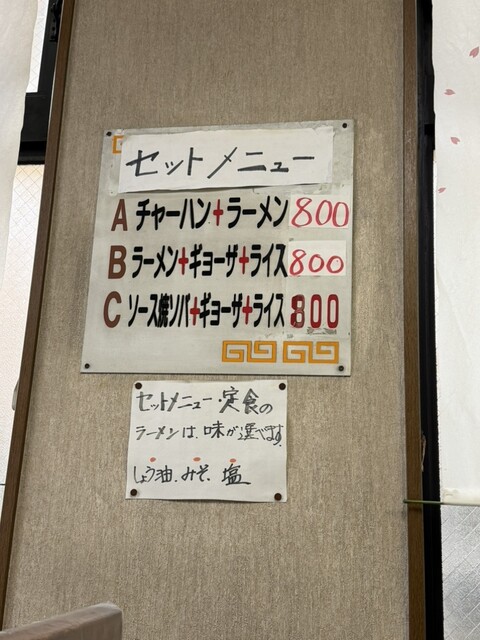 セットメニュー
A チャーハン+ラーメン 800
B ラーメン+ギョーザ+ライス 800
C ソース焼ソバ+ギョーザ+ライス 800
セットメニュー・定食の
ラーメンは、味が選べます。
しょう油、みそ、塩